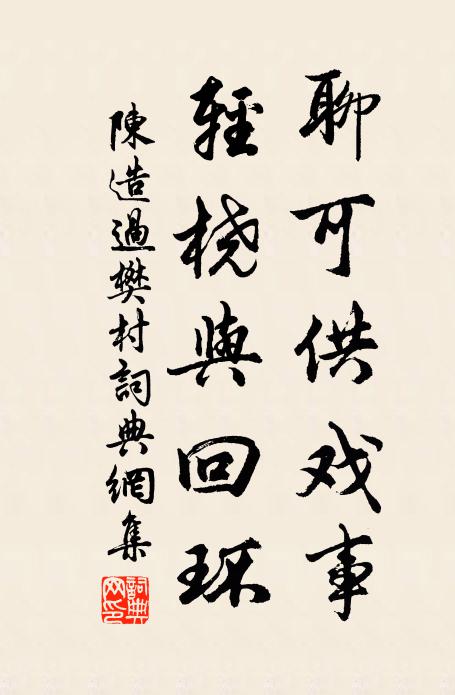 聊可供戏事
輕桡與回环
陳造過樊村詞典網集
詞典文印